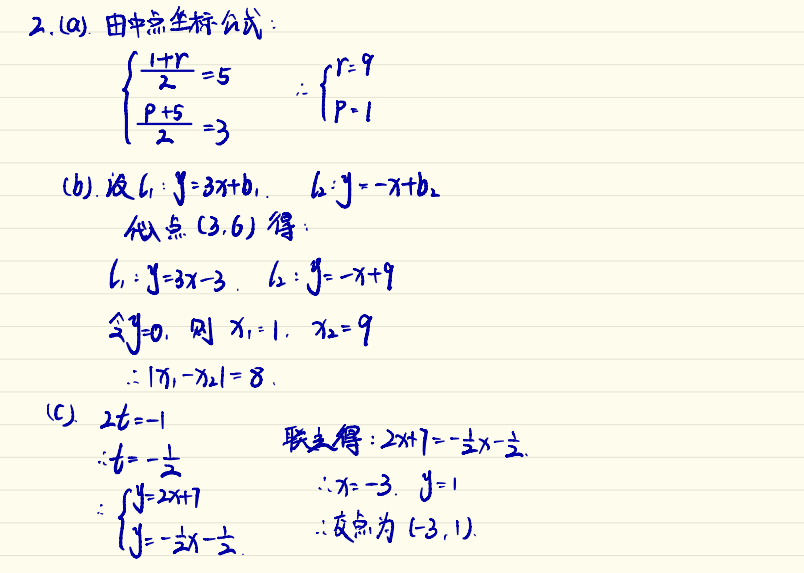 2.(a). 由中点坐标公式:
{ (1+r)/2 = 5
(p+5)/2 = 3
∴ { r=9
p=1
(b). 设 l₁: y=3x+b₁. l₂: y=-x+b₂
代入点 (3,6) 得:
l₁: y=3x-3. l₂: y=-x+9
令y=0, 则 x₁=1. x₂=9
∴ |x₁-x₂|=8.
(c). 2t=-1
∴ t=-1/2
∴ { y=2x+7
y=-1/2x-1/2.
联立得: 2x+7=-1/2x-1/2.
∴ x=-3. y=1
∴ 交点为 (-3,1).